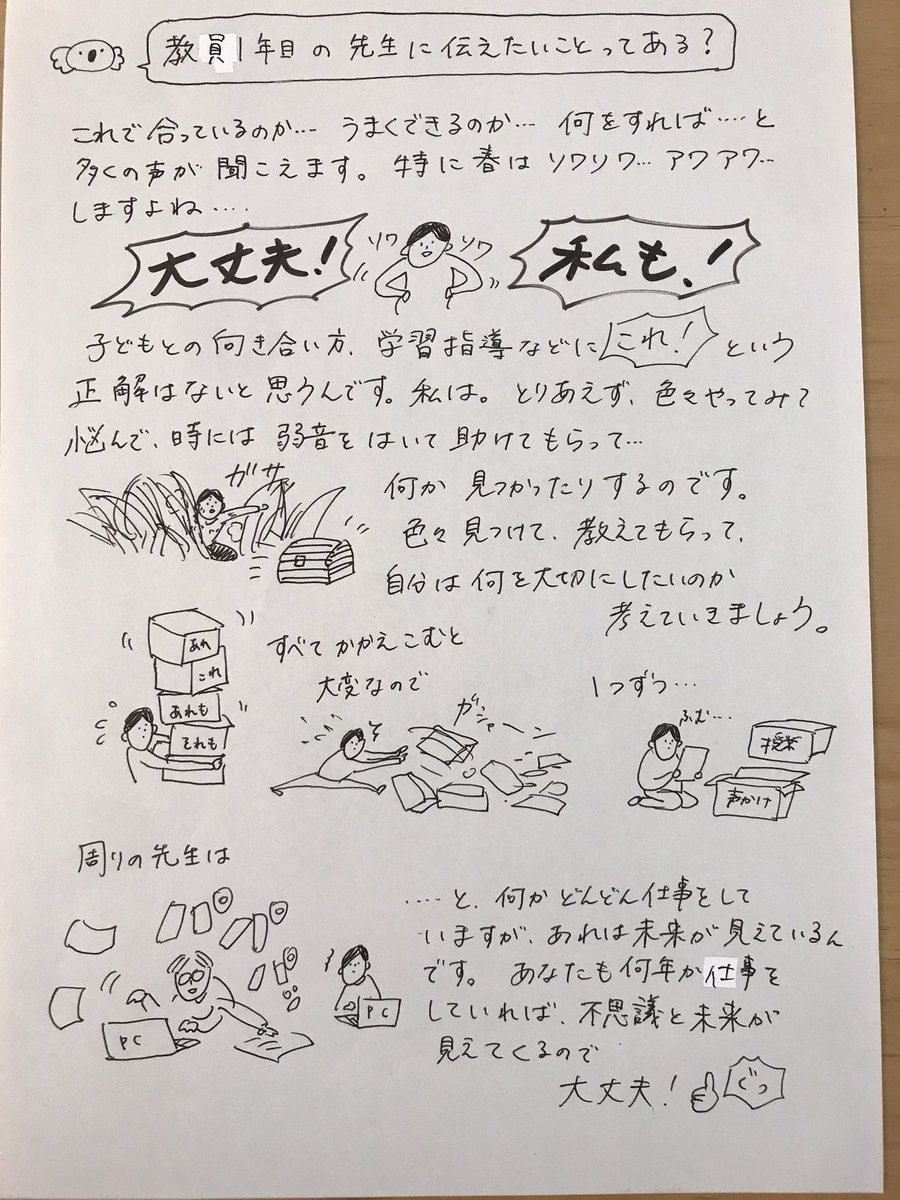 教員1年目の先生に伝えたいことってある?
これで合っているのか… うまくできるのか… 何をすれば‥‥と
多くの声が聞こえます。特に春はソワソワ… アワアワ…
しますよね‥‥
大丈夫!
ソワ
ソワ
私も!
子どもとの向き合い方、学習指導などに これ! という
正解はないと思うんです。私は。とりあえず、色々やってみて
悩んで、時には弱音をはいて助けてもらって…
ガサッ
何か見つかったりするのです。
色々見つけて、教えてもらって、
自分は何を大切にしたいのか
考えていきましょう。
あれ
これ
あれも
それも
すべてかかえこむと
大変なので
ガシャーン
1つずつ…
ふむ…
授業
声かけ
周りの先生は
PC
PC
‥‥と、何かどんどん仕事をして
いますが、あれは未来が見えているん
です。あなたも何年か仕事を
していれば、不思議と未来が
見えてくるので
大丈夫!
ぐっ